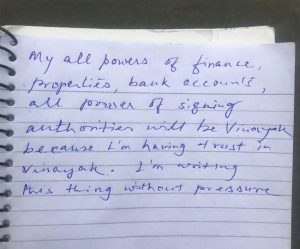 My all powers of finance,
properties, bank accounts,
all power of signing
authorities will be Vinayak
because I'm having trust in
Vinayak. I'm writing
this thing without pressure